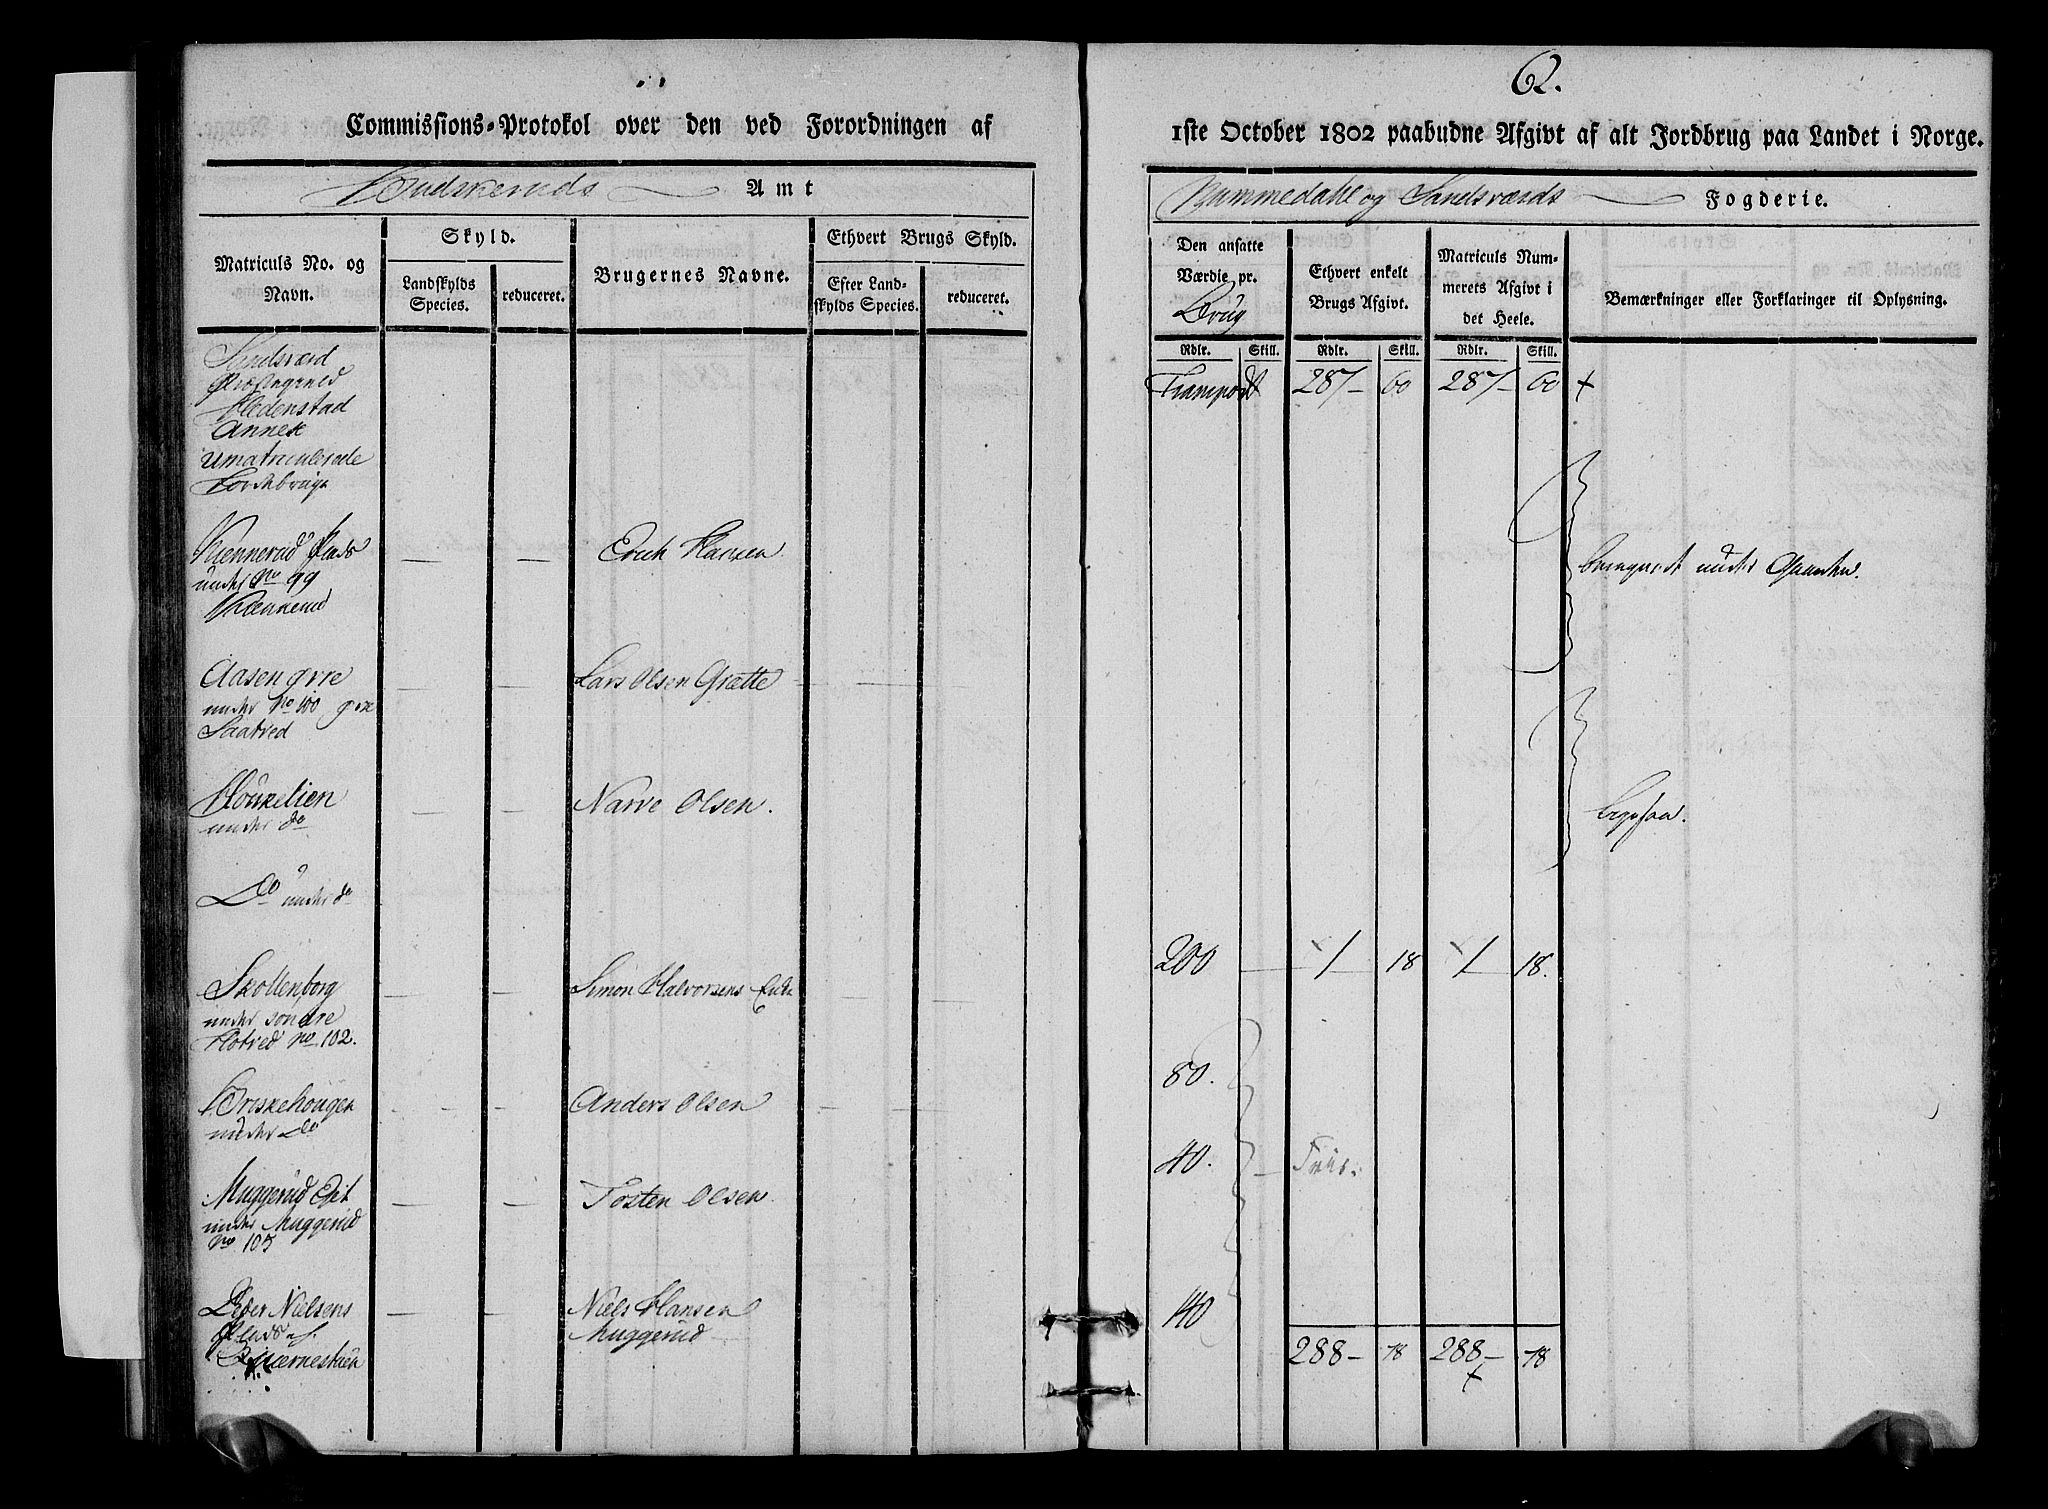 62.
Commissions-Protokol over den ved Forordningen af
1ste October 1802 paabudne Afgivt af alt Jordbrug paa Landet i Norge.
Budskeruds Amt
Nummedahl og Sandsværds Fogderie.
Matriculs No. og Navn.
Skyld.
Landskylds Species.
reduceret.
Brugernes Navne.
Ethvert Brugs Skyld.
Efter Landskylds Species.
reduceret.
Den ansatte Værdie pr. Brug
Ethvert enkelt Brugs Afgivt.
Matriculs Nummerets Afgivt i det Heele.
Bemærkninger eller Forklaringer til Oplysning.
Rdlr. Skill. Rdlr. Skill. Rdlr. Skill.
Sandsværd
Præstegield
Hedenstad
Annex
Umatriculerede
Jordebruge
Transport 287 — 60 287 — 60 +
Plads
under No 99
— — Erich Hansen
under
Aasen øvre
under No 100 øvre
Saatved
— — Lars Olsen Grætte — —
under do
— — Narve Olsen.
Do under do
Skollenborg
under søndre
Hotved No 102.
— — Simon Halvorsens Enke — —
200 — 1 18 1 18.
Briskehougen
under Do
— — Anders Olsen — —
80.
Muggerud Eiet
under Muggerud
No 105
— — Tosten Olsen
40. — Friis.
Peder Nielsens
Plads af
Biørnestuen
— — Niels Hansen
Muggerud
40
288 — 78 288 — 78
+